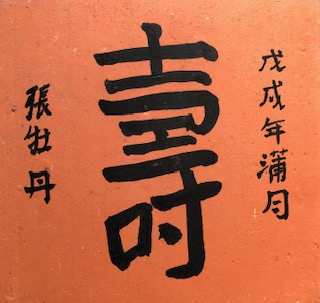 戊戌年蒲月
壽
張牡丹